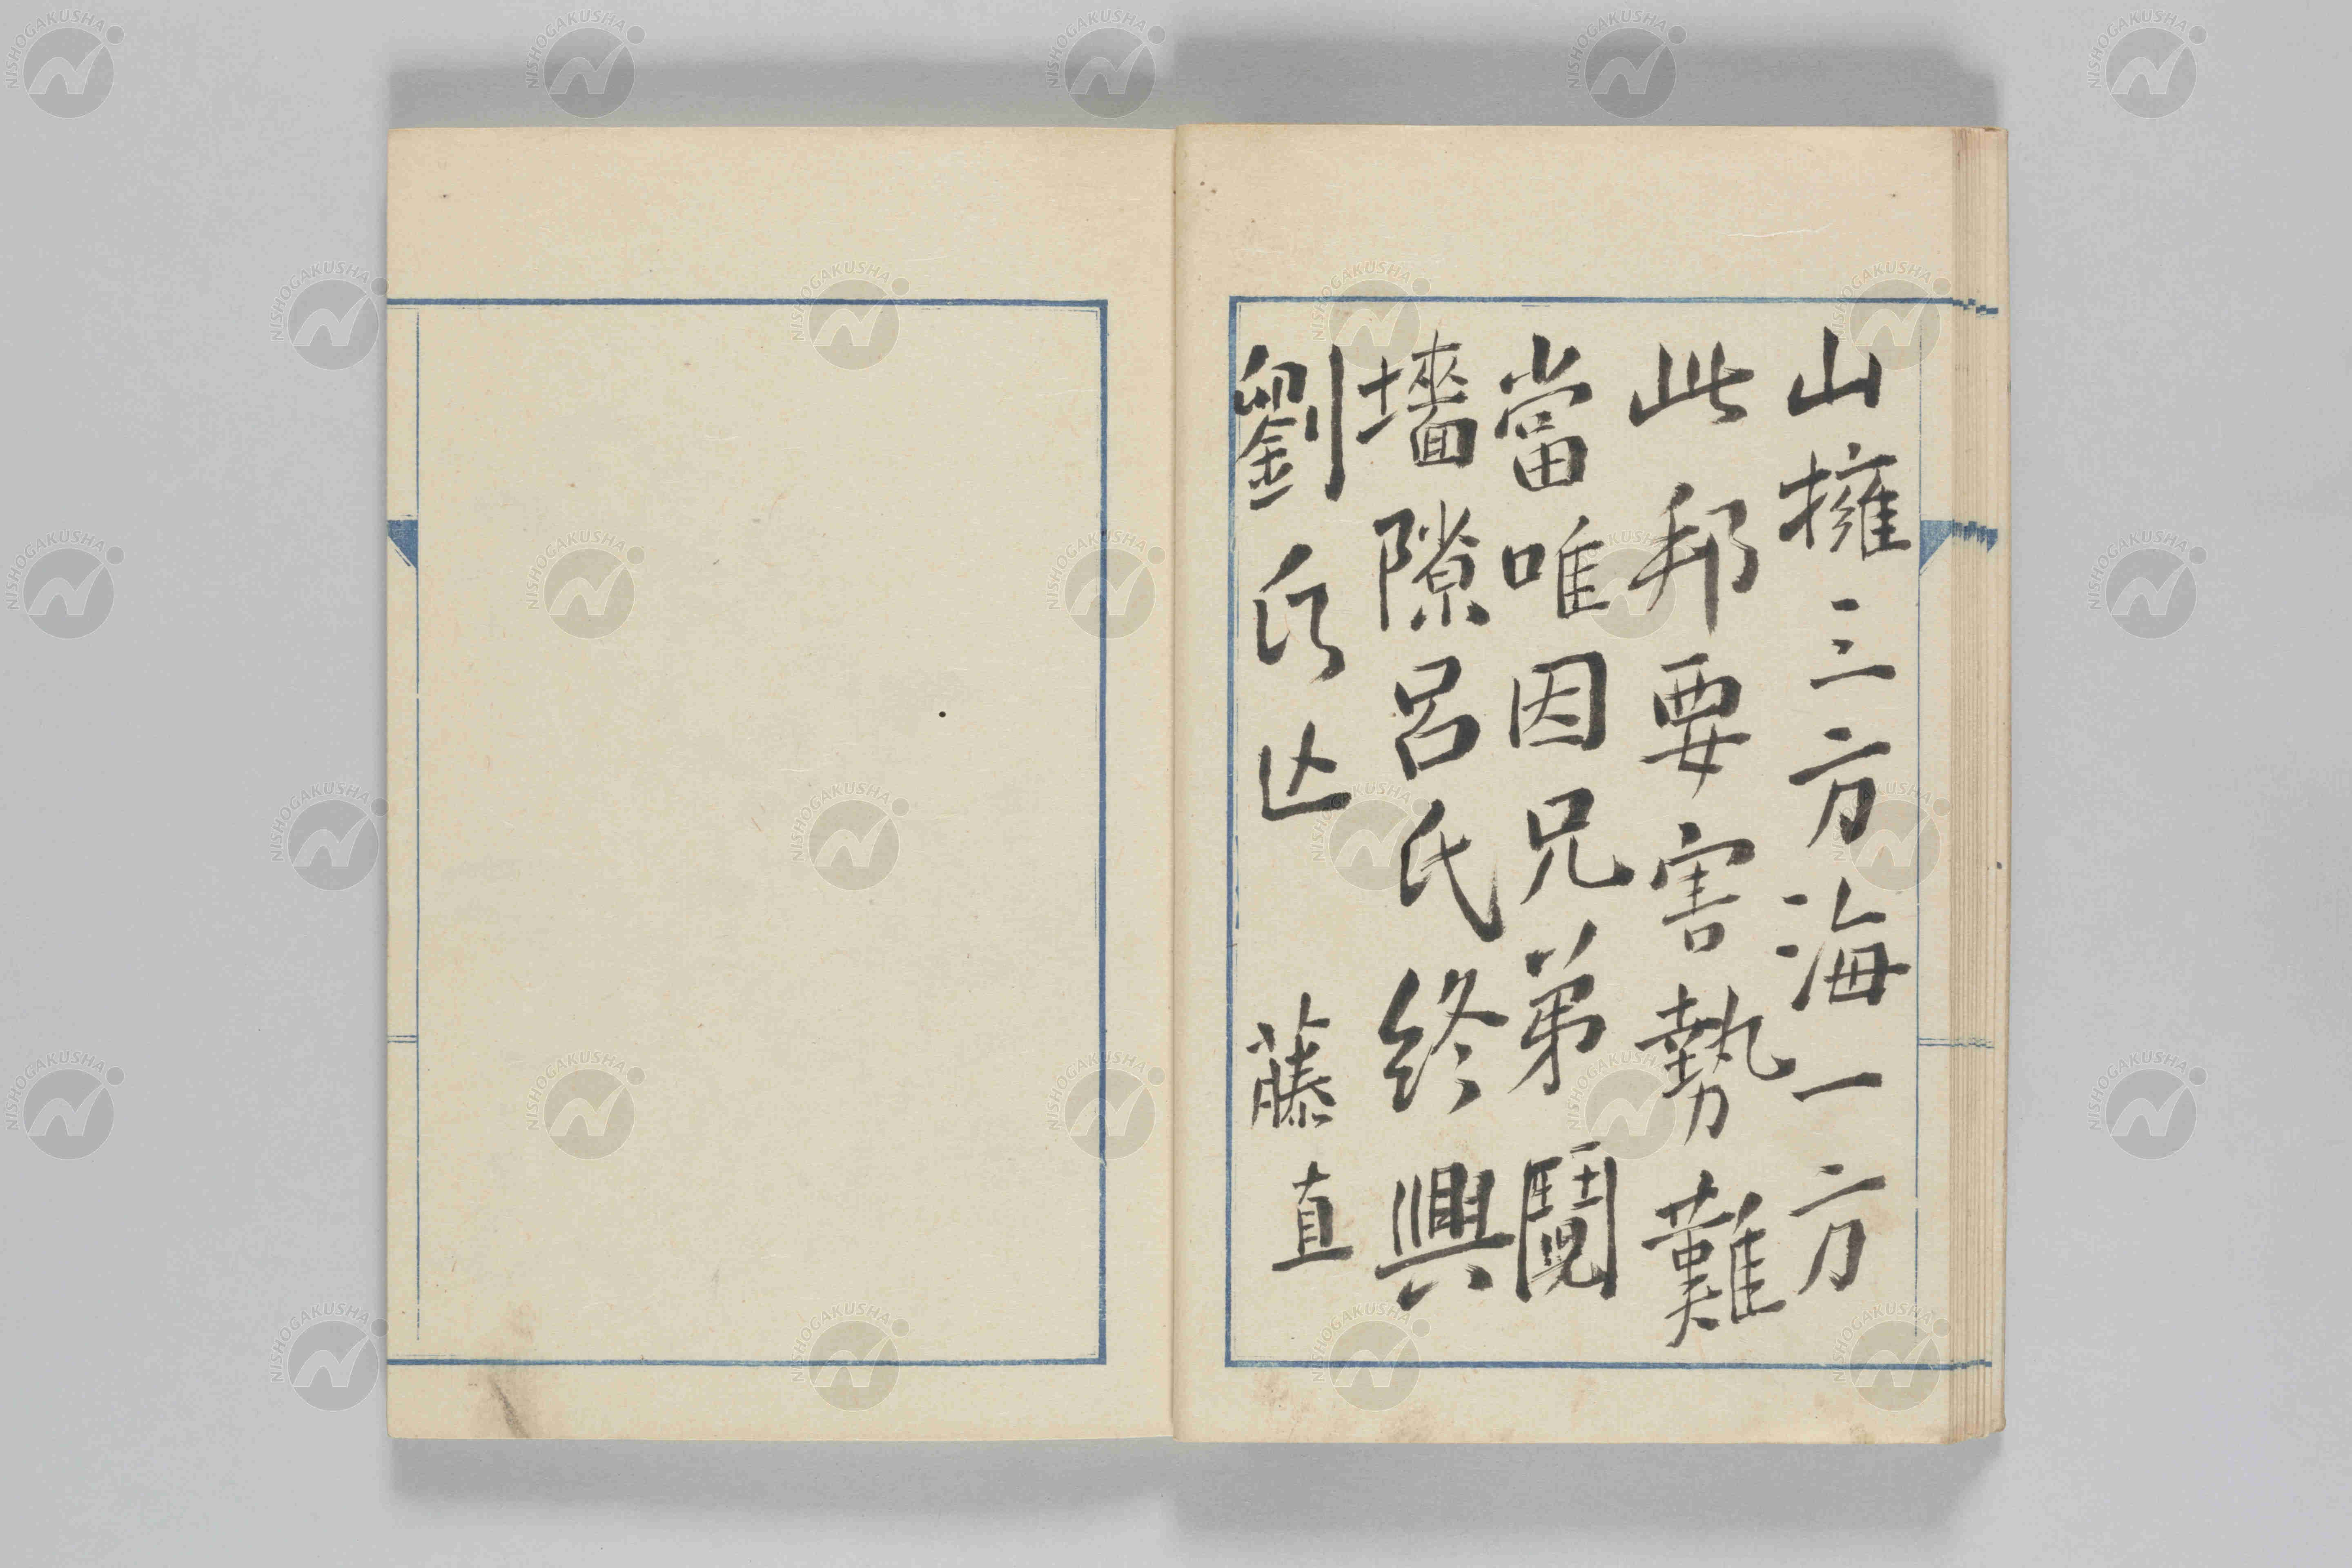 山擁三方海一方
此邦要害勢難
當唯因兄弟鬩
墻隙呂氏終興
劉氏亾
藤直
NISHOGAKUSHA